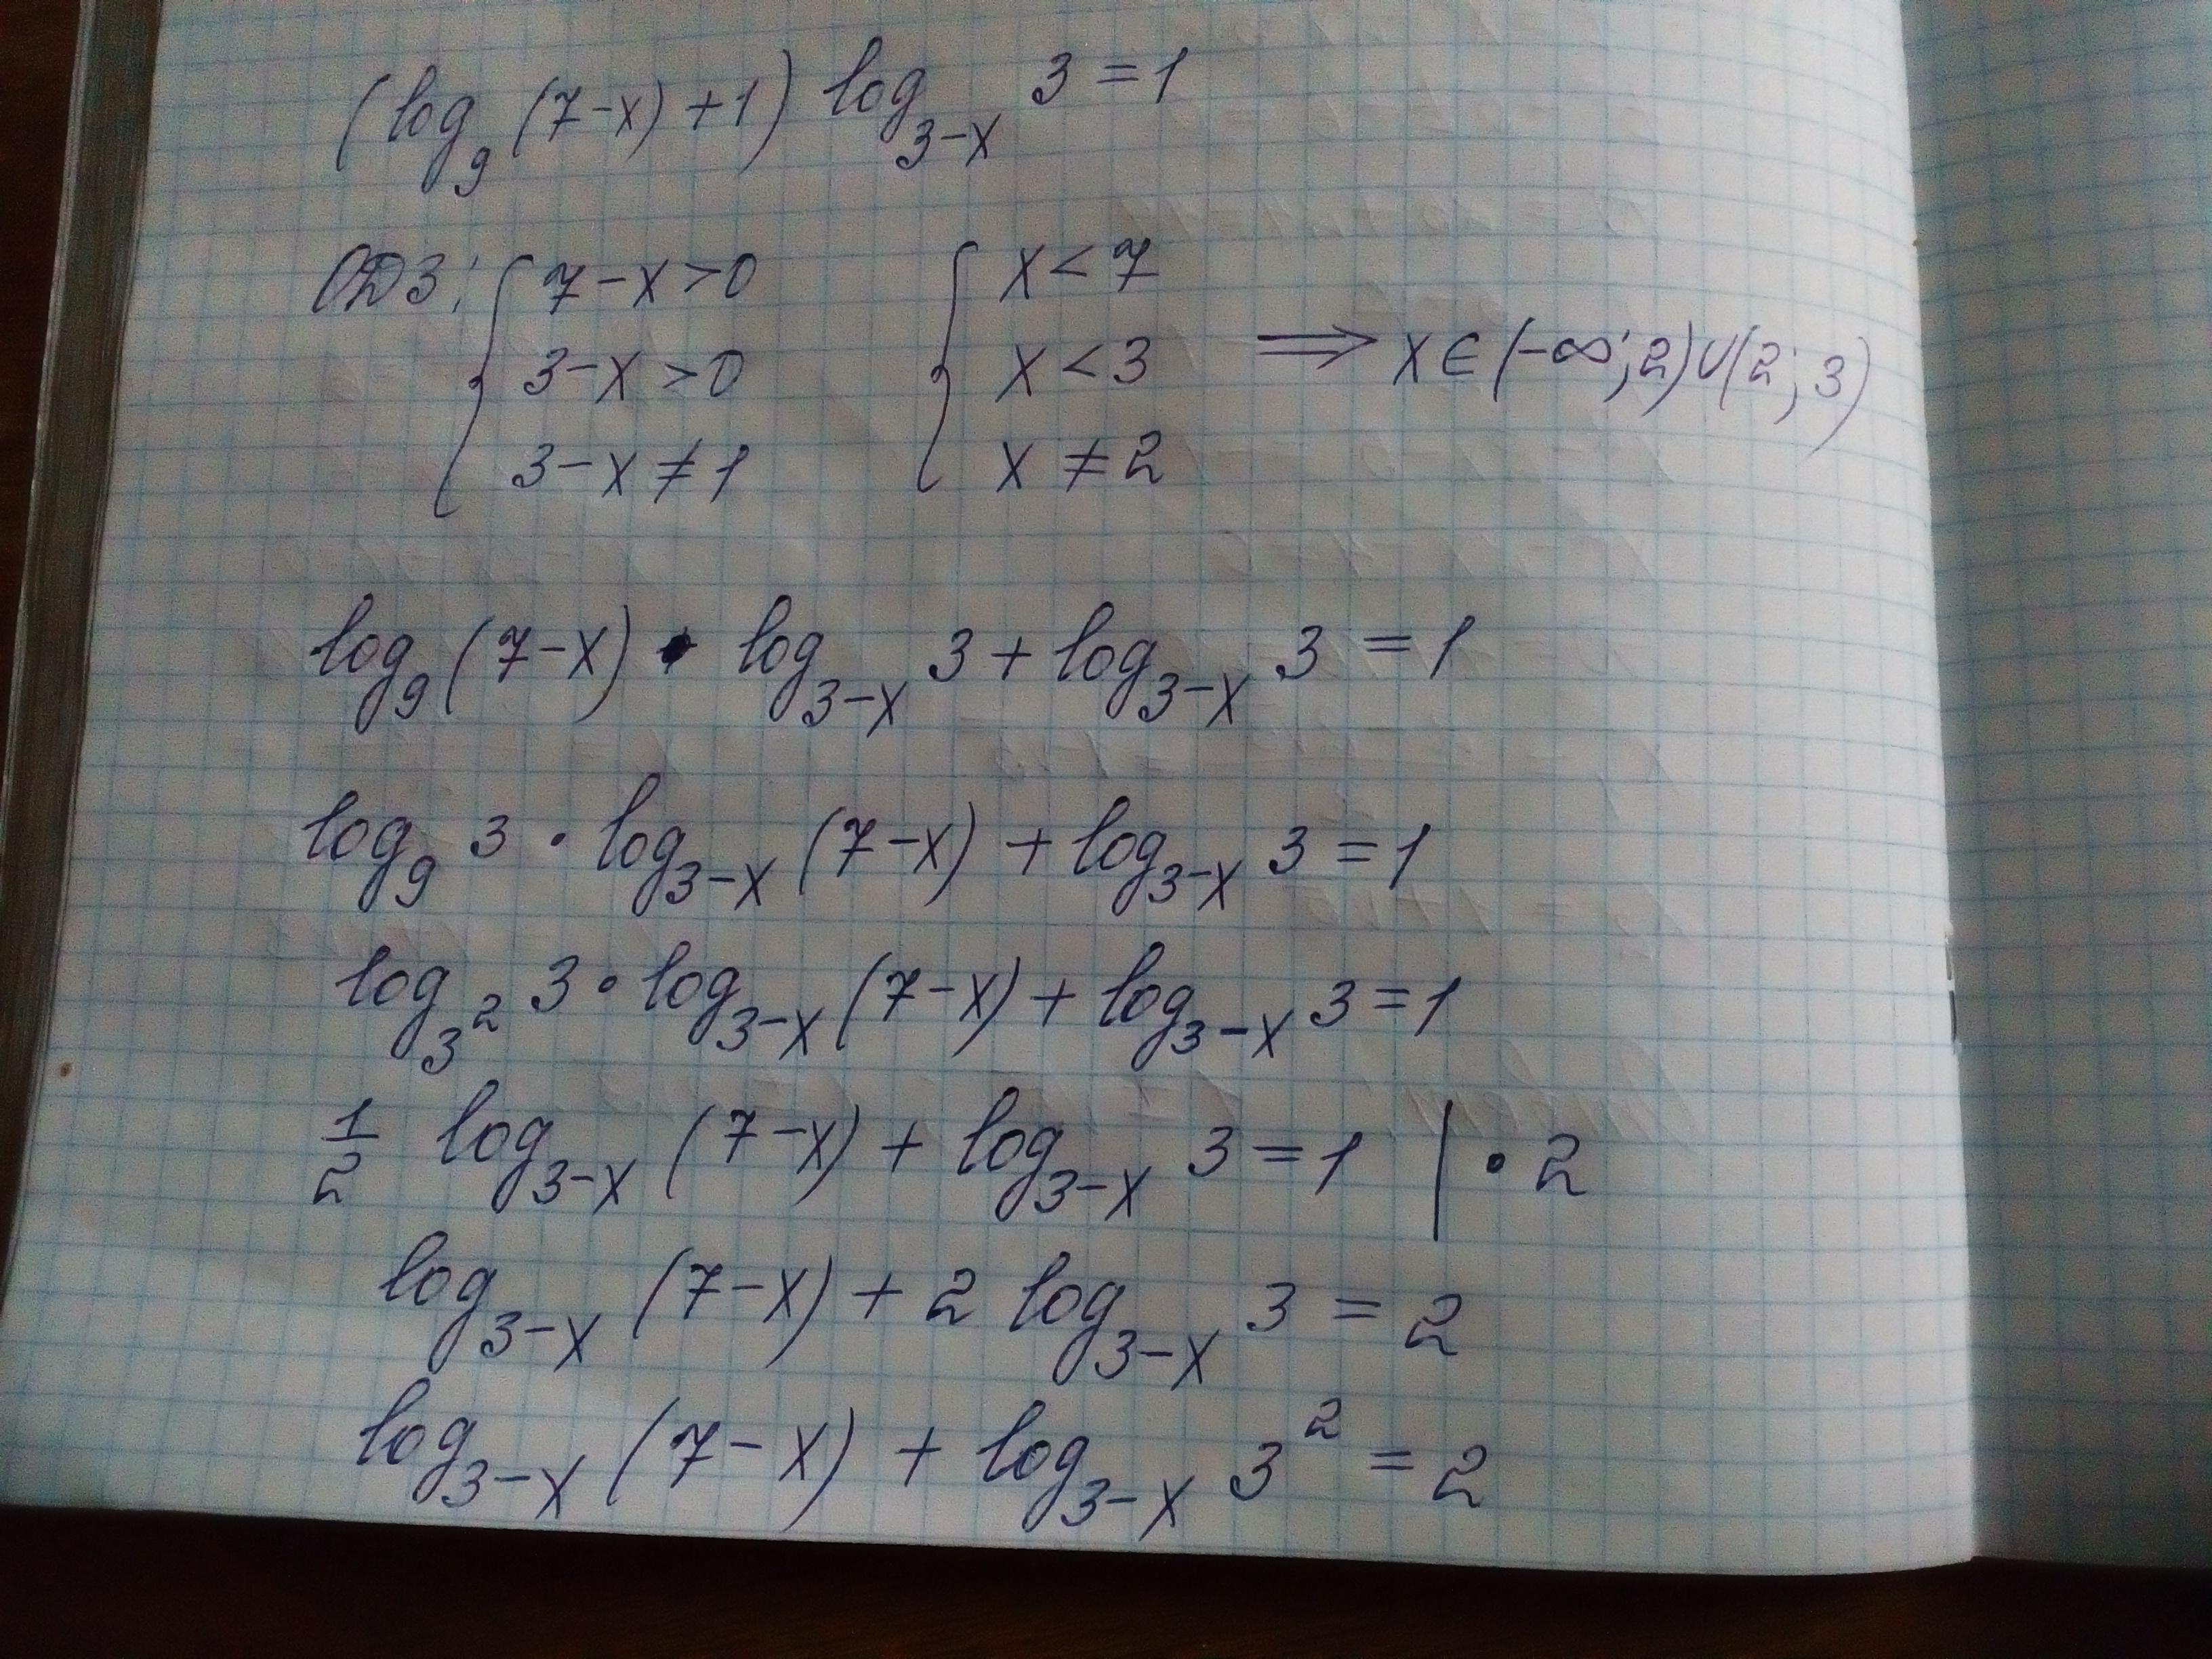 (log₉(7-x)+1) log₃₋ₓ 3 = 1
ОДЗ: { 7-x>0 { x<7
3-x>0 x<3 ⟹ x∈(-∞;2)∪(2;3)
3-x≠1 x≠2
log₉(7-x) • log₃₋ₓ 3 + log₃₋ₓ 3 = 1
log₉ 3 • log₃₋ₓ (7-x) + log₃₋ₓ 3 = 1
log_{3²} 3 • log₃₋ₓ (7-x) + log₃₋ₓ 3 = 1
1/2 log₃₋ₓ (7-x) + log₃₋ₓ 3 = 1 | • 2
log₃₋ₓ (7-x) + 2 log₃₋ₓ 3 = 2
log₃₋ₓ (7-x) + log₃₋ₓ 3² = 2